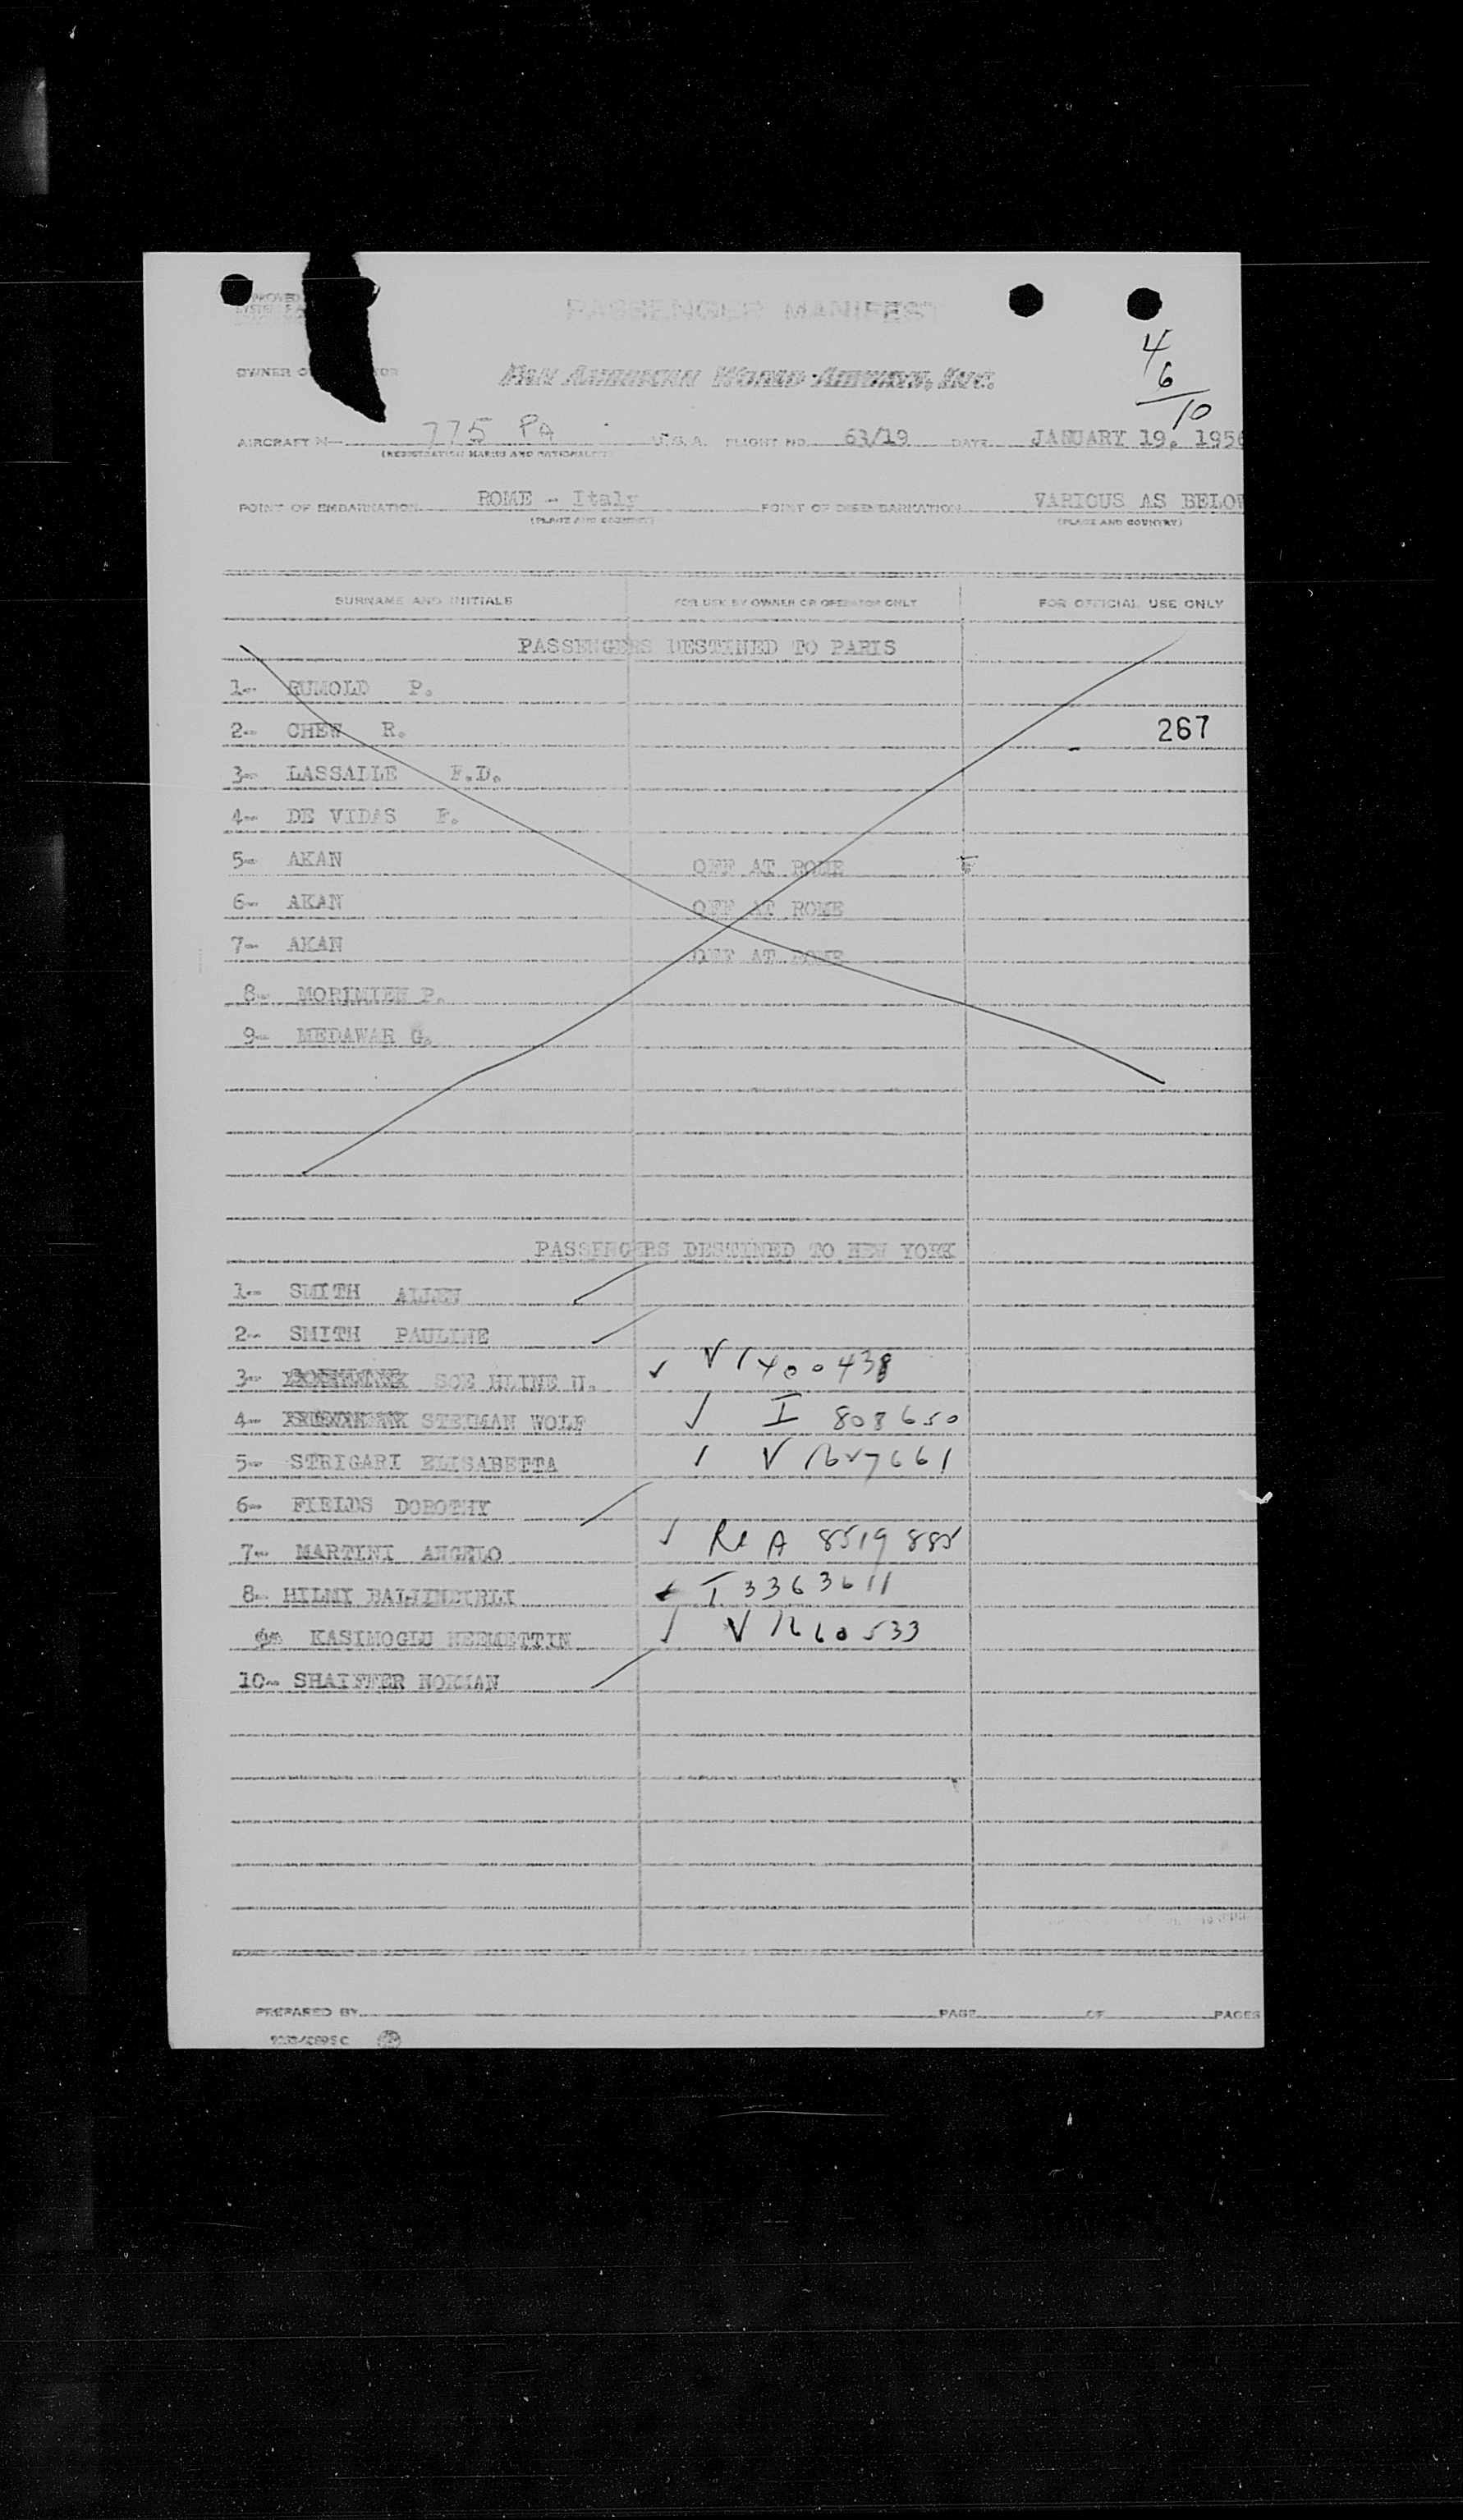 PASSENGER MANIFEST
4
6
10
OWNER O
PAN AMERICAN WORLD AIRWAYS, INC.
AIRCRAFT N— 775 PA U.S.A. FLIGHT NO. 63/19 DATE JANUARY 19, 1956
(REGISTRATION MARKS AND NATIONALITY)
POINT OF EMBARKATION ROME - Italy POINT OF DISEMBARKATION VARIOUS AS BELOW
(PLACE AND COUNTRY) (PLACE AND COUNTRY)
SURNAME AND INITIALS FOR USE BY OWNER OR OPERATOR ONLY FOR OFFICIAL USE ONLY
PASSENGERS DESTINED TO PARIS
1- RUMOLD P.
2- CHEW R. 267
3- LASSALLE F.D.
4- DE VIDAS F.
5- AKAN OFF AT ROME
6- AKAN OFF AT ROME
7- AKAN OFF AT ROME
8- P.
9- MEDAWAR G.
PASSENGERS DESTINED TO NEW YORK
1- SMITH ALLEN
2- SMITH PAULINE
3- SOE HLINE U. ✓ V 1400438
4- STEIMAN WOLF ✓ I 808650
5- STRIGARI ELISABETTA ✓ V 1627661
6- FIELDS DOROTHY
7- MARTINI ANGELO ✓ Re A 8519885
8- HILMI ✓ I 3363611
KASIMOGLU NEEMETTIN ✓ V 1660533
10- SHAIFFER NORMAN
PREPARED BY PAGE OF PAGES